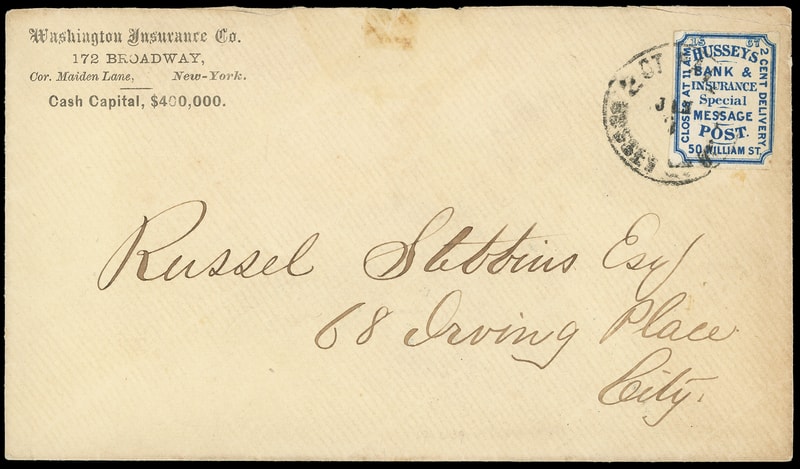 Washington Insurance Co.
172 BROADWAY,
Cor. Maiden Lane, New-York.
Cash Capital, $400,000.
15 CT
HUSSEY'S
BANK &
INSURANCE
Special
MESSAGE
POST.
50 WILLIAM ST.
CLOSES AT 11 AM
2 CENT DELIVERY
Russel Stebbins Esq
68 Irving Place
City.